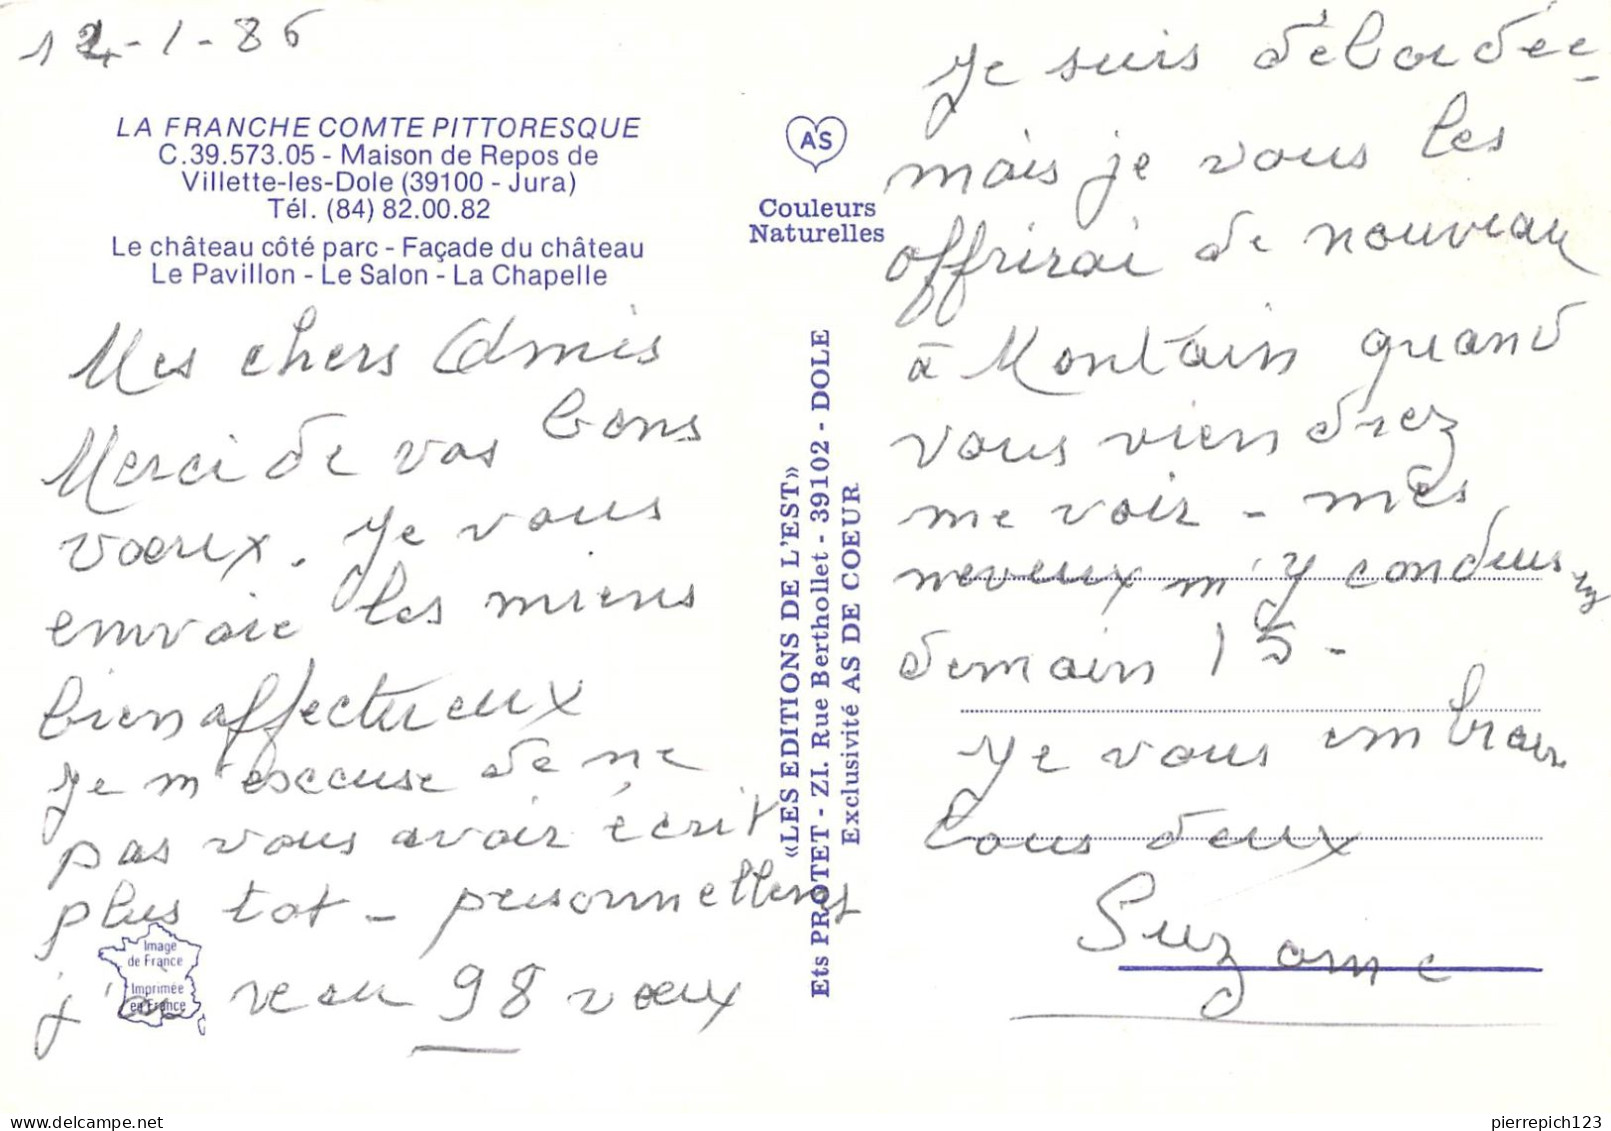 14-1-86
LA FRANCHE COMTE PITTORESQUE
C.39.573.05 - Maison de Repos de
Villette-les-Dole (39100 - Jura)
Tél. (84) 82.00.82
Le château côté parc - Façade du château
Le Pavillon - Le Salon - La Chapelle
Mes chers Amis
Merci de vos bons
voeux. Je vous
envoie les miens
bien affectueux
Je m'excuse de ne
pas vous avoir écrit
plus tot - personnellemt
j'ai reçu 98 vœux
Image
de France
Imprimée
en France
AS
Couleurs
Naturelles
«LES EDITIONS DE L'EST»
Ets PROTET - ZI. Rue Berthollet - 39102 - DOLE
Exclusivité AS DE COEUR
Je suis débordée -
mais je vous les
offrirai de nouveau
à Montain quand
vous viendrez
me voir - mes
neveux m'y conduisent
demain 15 -
Je vous embrasse
tous deux
Suzanne
pierrepich123